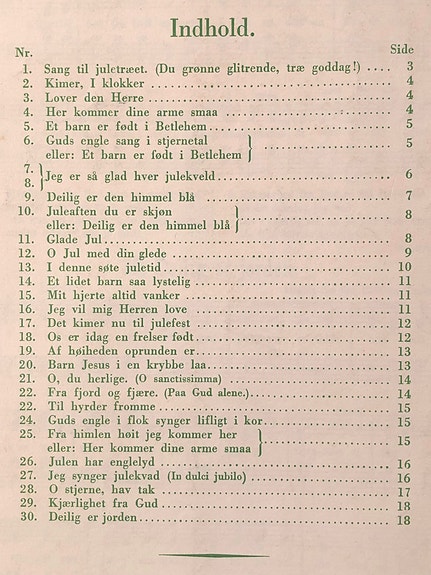 Indhold.
Nr. Side
1. Sang til juletræet. (Du grønne glitrende, træ goddag!) .... 3
2. Kimer, I klokker 4
3. Lover den Herre 4
4. Her kommer dine arme smaa 4
5. Et barn er født i Betlehem 5
6. Guds engle sang i stjernetal
eller: Et barn er født i Betlehem 5
7.
8. Jeg er så glad hver julekveld 6
9. Deilig er den himmel blå 7
10. Juleaften du er skjøn
eller: Deilig er den himmel blå 8
11. Glade Jul 8
12. O Jul med din glede 9
13. I denne søte juletid 10
14. Et lidet barn saa lystelig 11
15. Mit hjerte altid vanker 11
16. Jeg vil mig Herren love 11
17. Det kimer nu til julefest 12
18. Os er idag en frelser født 12
19. Af høiheden oprunden er 13
20. Barn Jesus i en krybbe laa 13
21. O, du herlige. (O sanctissima) 14
22. Fra fjord og fjære. (Paa Gud alene.) 14
22. Til hyrder fromme 15
24. Guds engle i flok synger lifligt i kor 15
25. Fra himlen høit jeg kommer her
eller: Her kommer dine arme smaa 15
26. Julen har englelyd 16
27. Jeg synger julekvad (In dulci jubilo) 16
28. O stjerne, hav tak 17
29. Kjærlighet fra Gud 18
30. Deilig er jorden 18